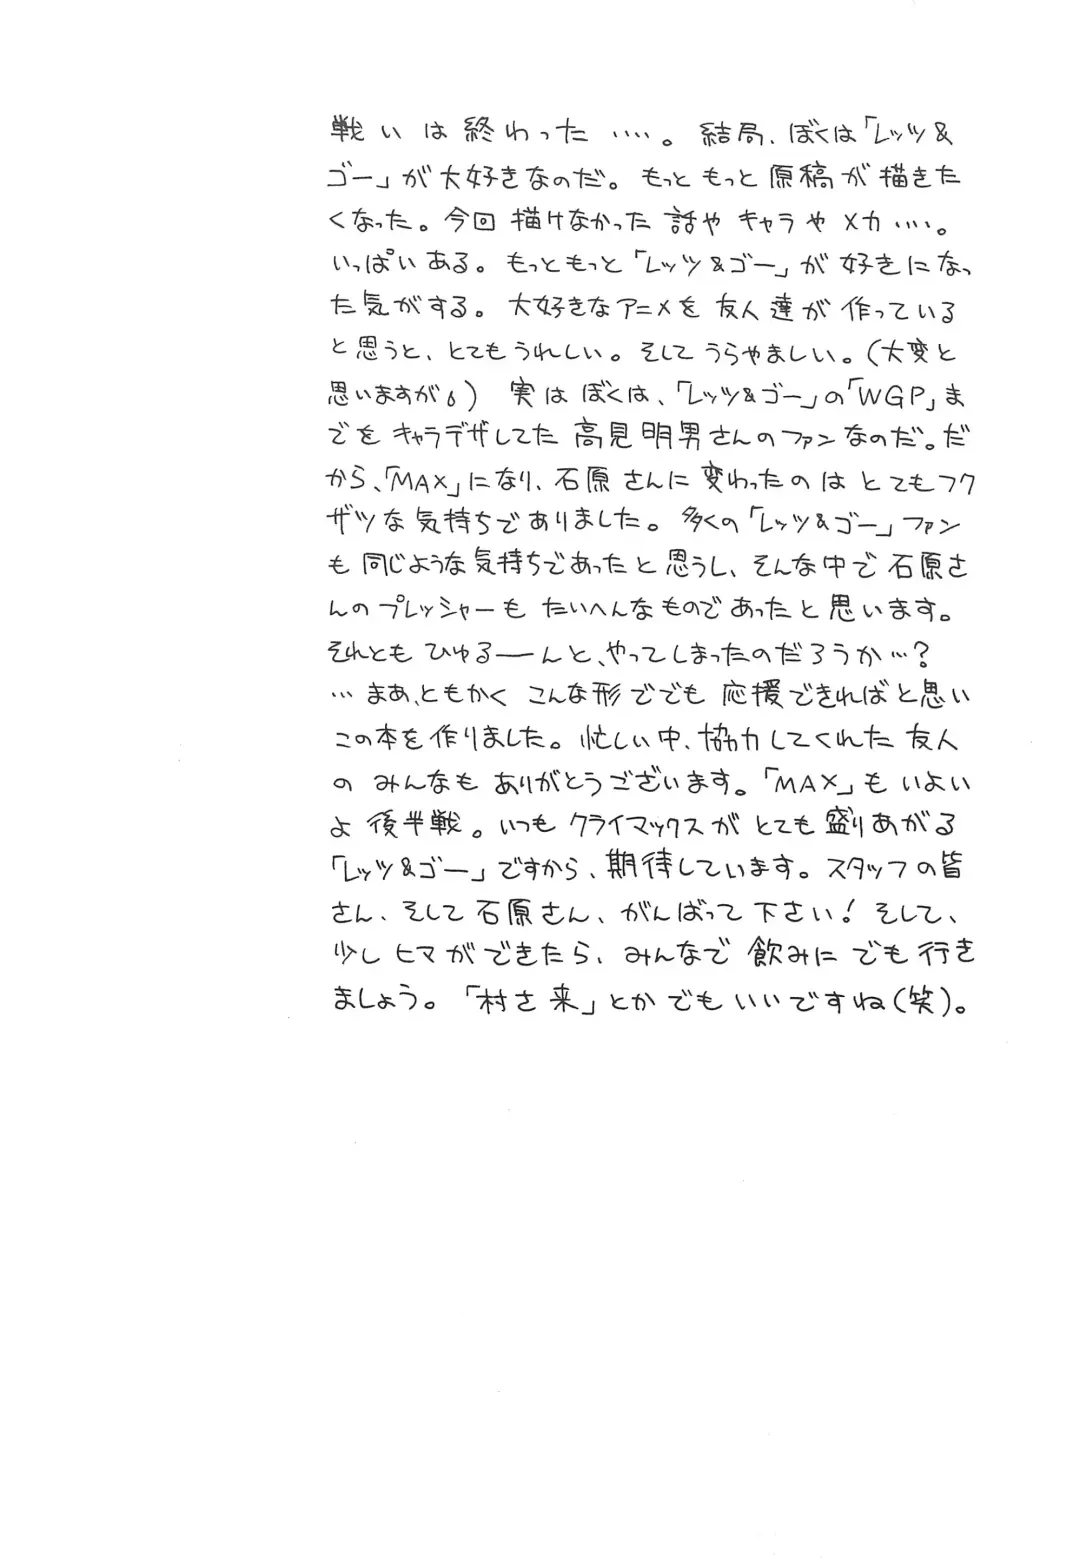 戦いは終わった‥‥。結局、ぼくは「レッツ&
ゴー」が大好きなのだ。もっともっと原稿が描きた
くなった。今回描けなかった話やキャラやメカ‥‥。
いっぱいある。もっともっと「レッツ&ゴー」が好きになっ
た気がする。大好きなアニメを友人達が作っている
と思うと、とてもうれしい。そしてうらやましい。(大変と
思いますが) 実はぼくは、「レッツ&ゴー」の「WGP」ま
でをキャラデザしてた高見明男さんのファンなのだ。だ
から、「MAX」になり、石原さんに変わったのはとてもフク
ザツな気持ちでありました。多くの「レッツ&ゴー」ファン
も同じような気持ちであったと思うし、そんな中で石原さ
んのプレッシャーもたいへんなものであったと思います。
それともひゅるーーんと、やってしまったのだろうか…?
…まあ、ともかくこんな形ででも応援できればと思い
この本を作りました。忙しい中、協力してくれた友人
のみんなもありがとうございます。「MAX」もいよい
よ後半戦。いつもクライマックスがとても盛りあがる
「レッツ&ゴー」ですから、期待しています。スタッフの皆
さん、そして石原さん、がんばって下さい!そして、
少しヒマができたら、みんなで飲みにでも行き
ましょう。「村さ来」とかでもいいですね(笑)。